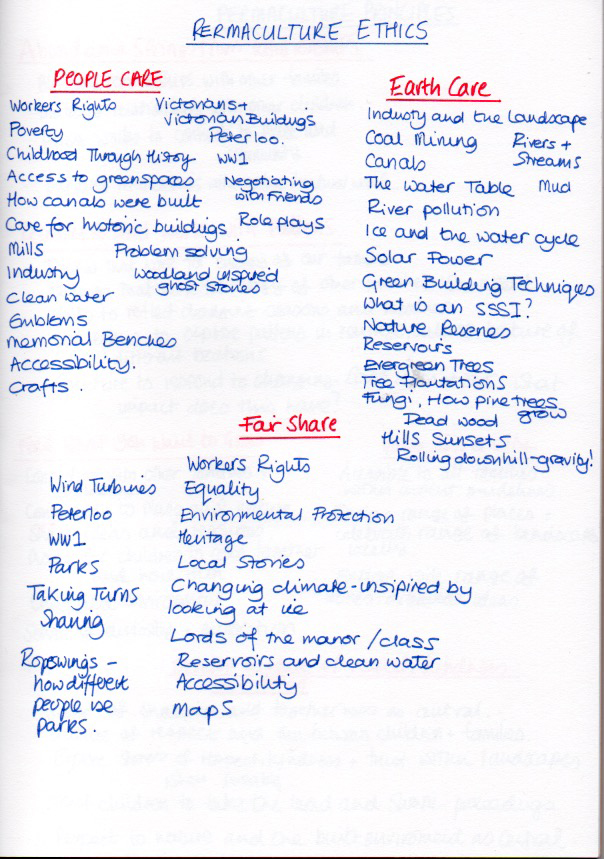 PERMACULTURE ETHICS
PEOPLE CARE
Workers Rights
Poverty
Childhood Through History
Access to greenspaces
How canals were built
Care for historic buildings
Mills
Industry
Clean water
Emblems
Memorial Benches
Accessibility.
Crafts.
Victorians +
Victorian Buildings
Peterloo.
WW1
Negotiating
with Friends
Role plays
Problem solving
woodland inspired
ghost stories
Earth Care
Industry and the Landscape
Coal Mining
Canals
The Water Table
River pollution
Ice and the water cycle
Solar Power
Green Building Techniques
What is an SSSI?
Nature Reserves
Reservoirs
Evergreen Trees
Tree Plantations
Fungi, How pine trees
grow
Dead wood
Hills Sunsets
Rolling downhill-gravity!
Rivers +
Streams
Mud
Fair Share
Wind Turbines
Peterloo
WW1
Parks
Taking Turns
Sharing
Ropeswings -
how different
people use
parks.
Workers Rights
Equality
Environmental Protection
Heritage
Local Stories
Changing climate-unsipired by
looking at
Lords of the manor/class
Reservoirs and clean water
Accessibility
Maps